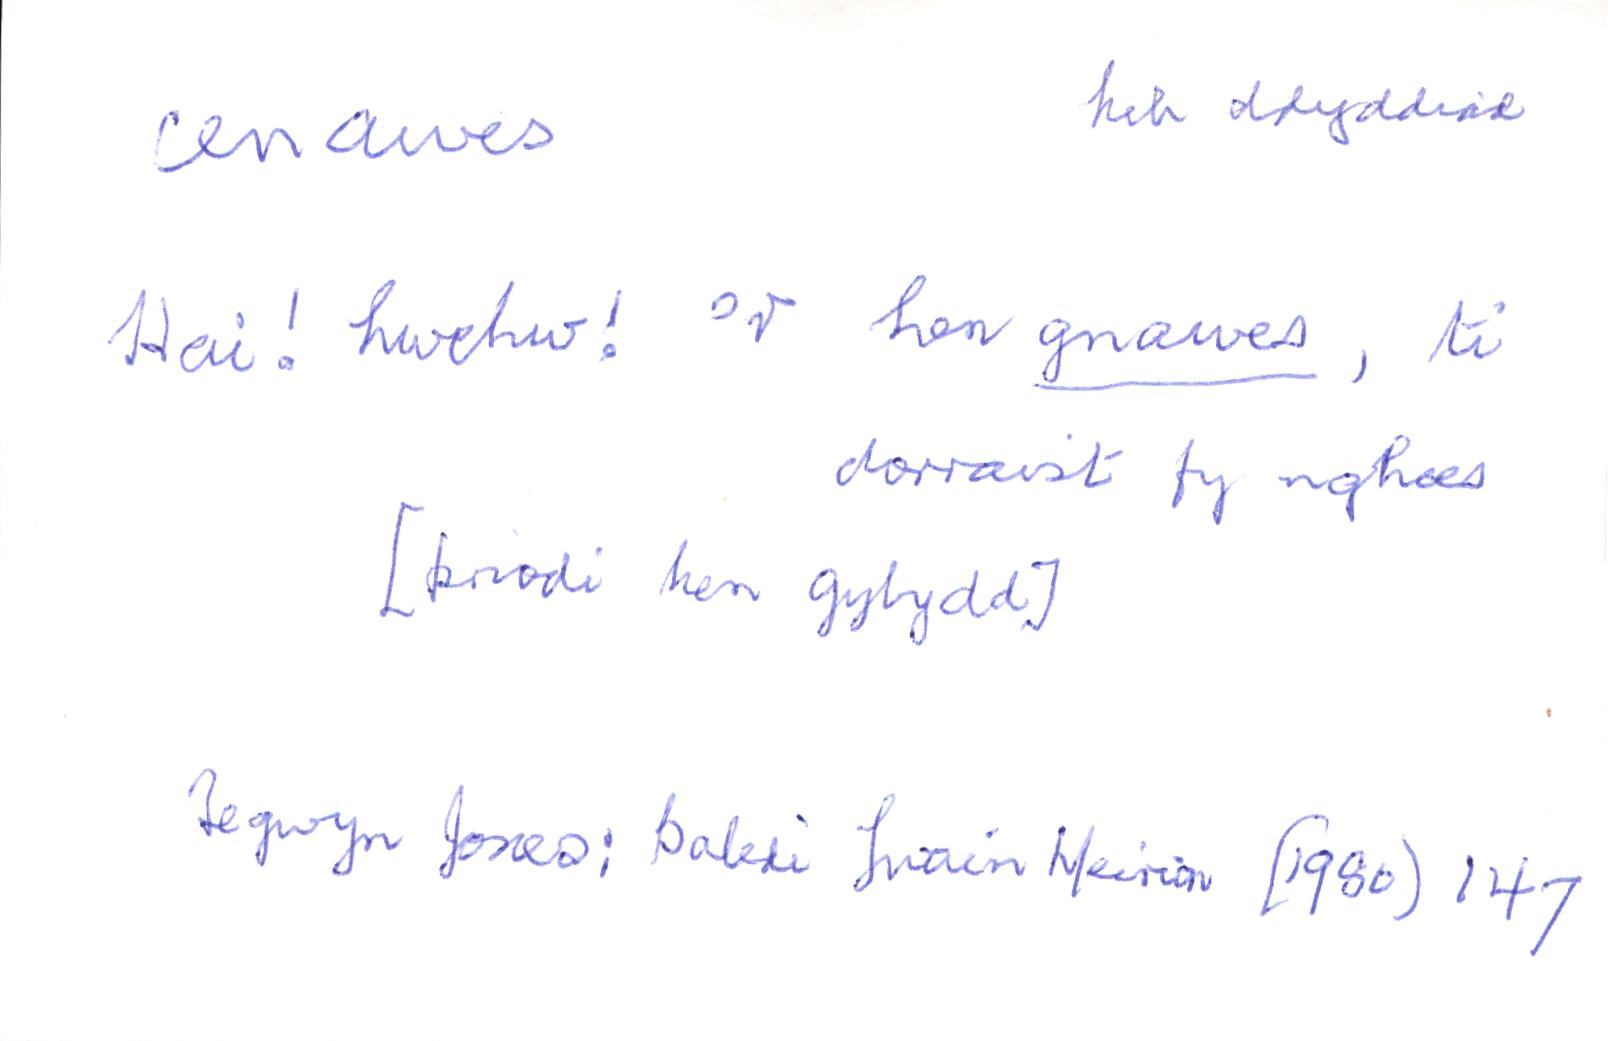 cenawes heb ddyddiad
Hai! hwchw! o'r hen gnawes, ti
dorraist fy nghoes
[priodi hen gybydd]
Tegwyn Jones: Baledi Ywain Meirion (1980) 147